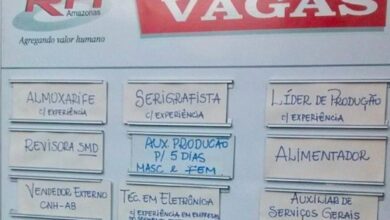 RH
Amazonas
Agregando valor humano
VAGAS
ALMOXARIFE
C/ EXPERIÊNCIA
SERIGRAFISTA
C/ EXPERIÊNCIA
LÍDER DE PRODUÇÃO
C/ EXPERIÊNCIA
REVISORA SMD
AUX PRODUCAO
P/ 5 DIAS
MASC & FEM.
ALIMENTADOR
VENDEDOR EXTERNO
CNH-AB
TÉC. EM ELETRÔNICA
C/ EXPERIÊNCIA EM EMPRESAS
AUXILIAR DE
SERVIÇOS GERAIS